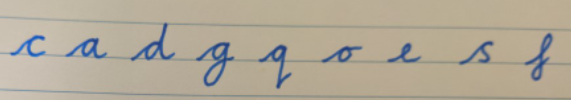 c a d g q o e s f